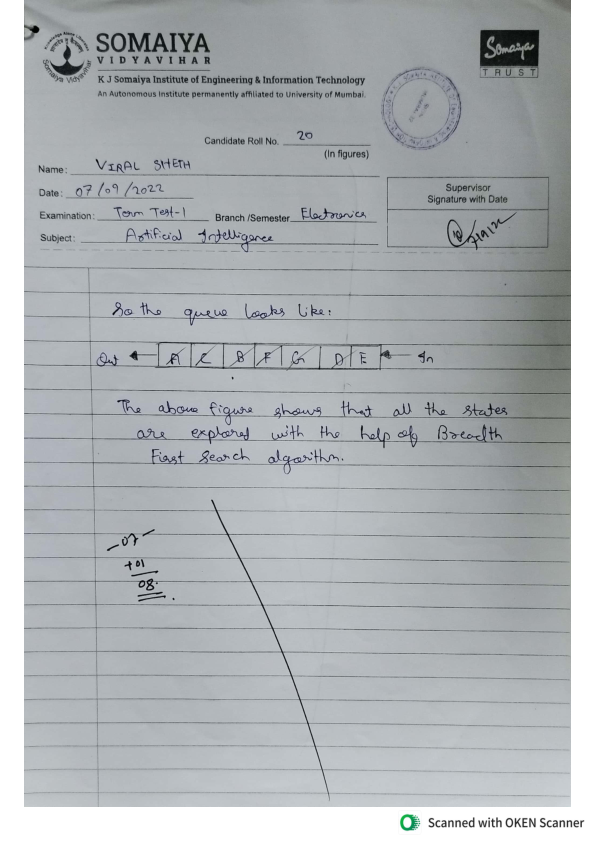 SOMAIYA
VIDYAVIHAR
Somaiya
TRUST
K J Somaiya Institute of Engineering & Information Technology
An Autonomous Institute permanently affiliated to University of Mumbai.
Candidate Roll No. 20
(In figures)
Name: VIRAL SHETH
Date: 07/09/2022
Supervisor
Signature with Date
Examination: Term Test-1 Branch /Semester Electronics
Subject: Artificial Intelligence
So the queue looks like:
Out A C B F G D E In
The above figure shows that all the states
are explored with the help of Breadth
First Search algorithm.
-07-
+01
08.
Scanned with OKEN Scanner